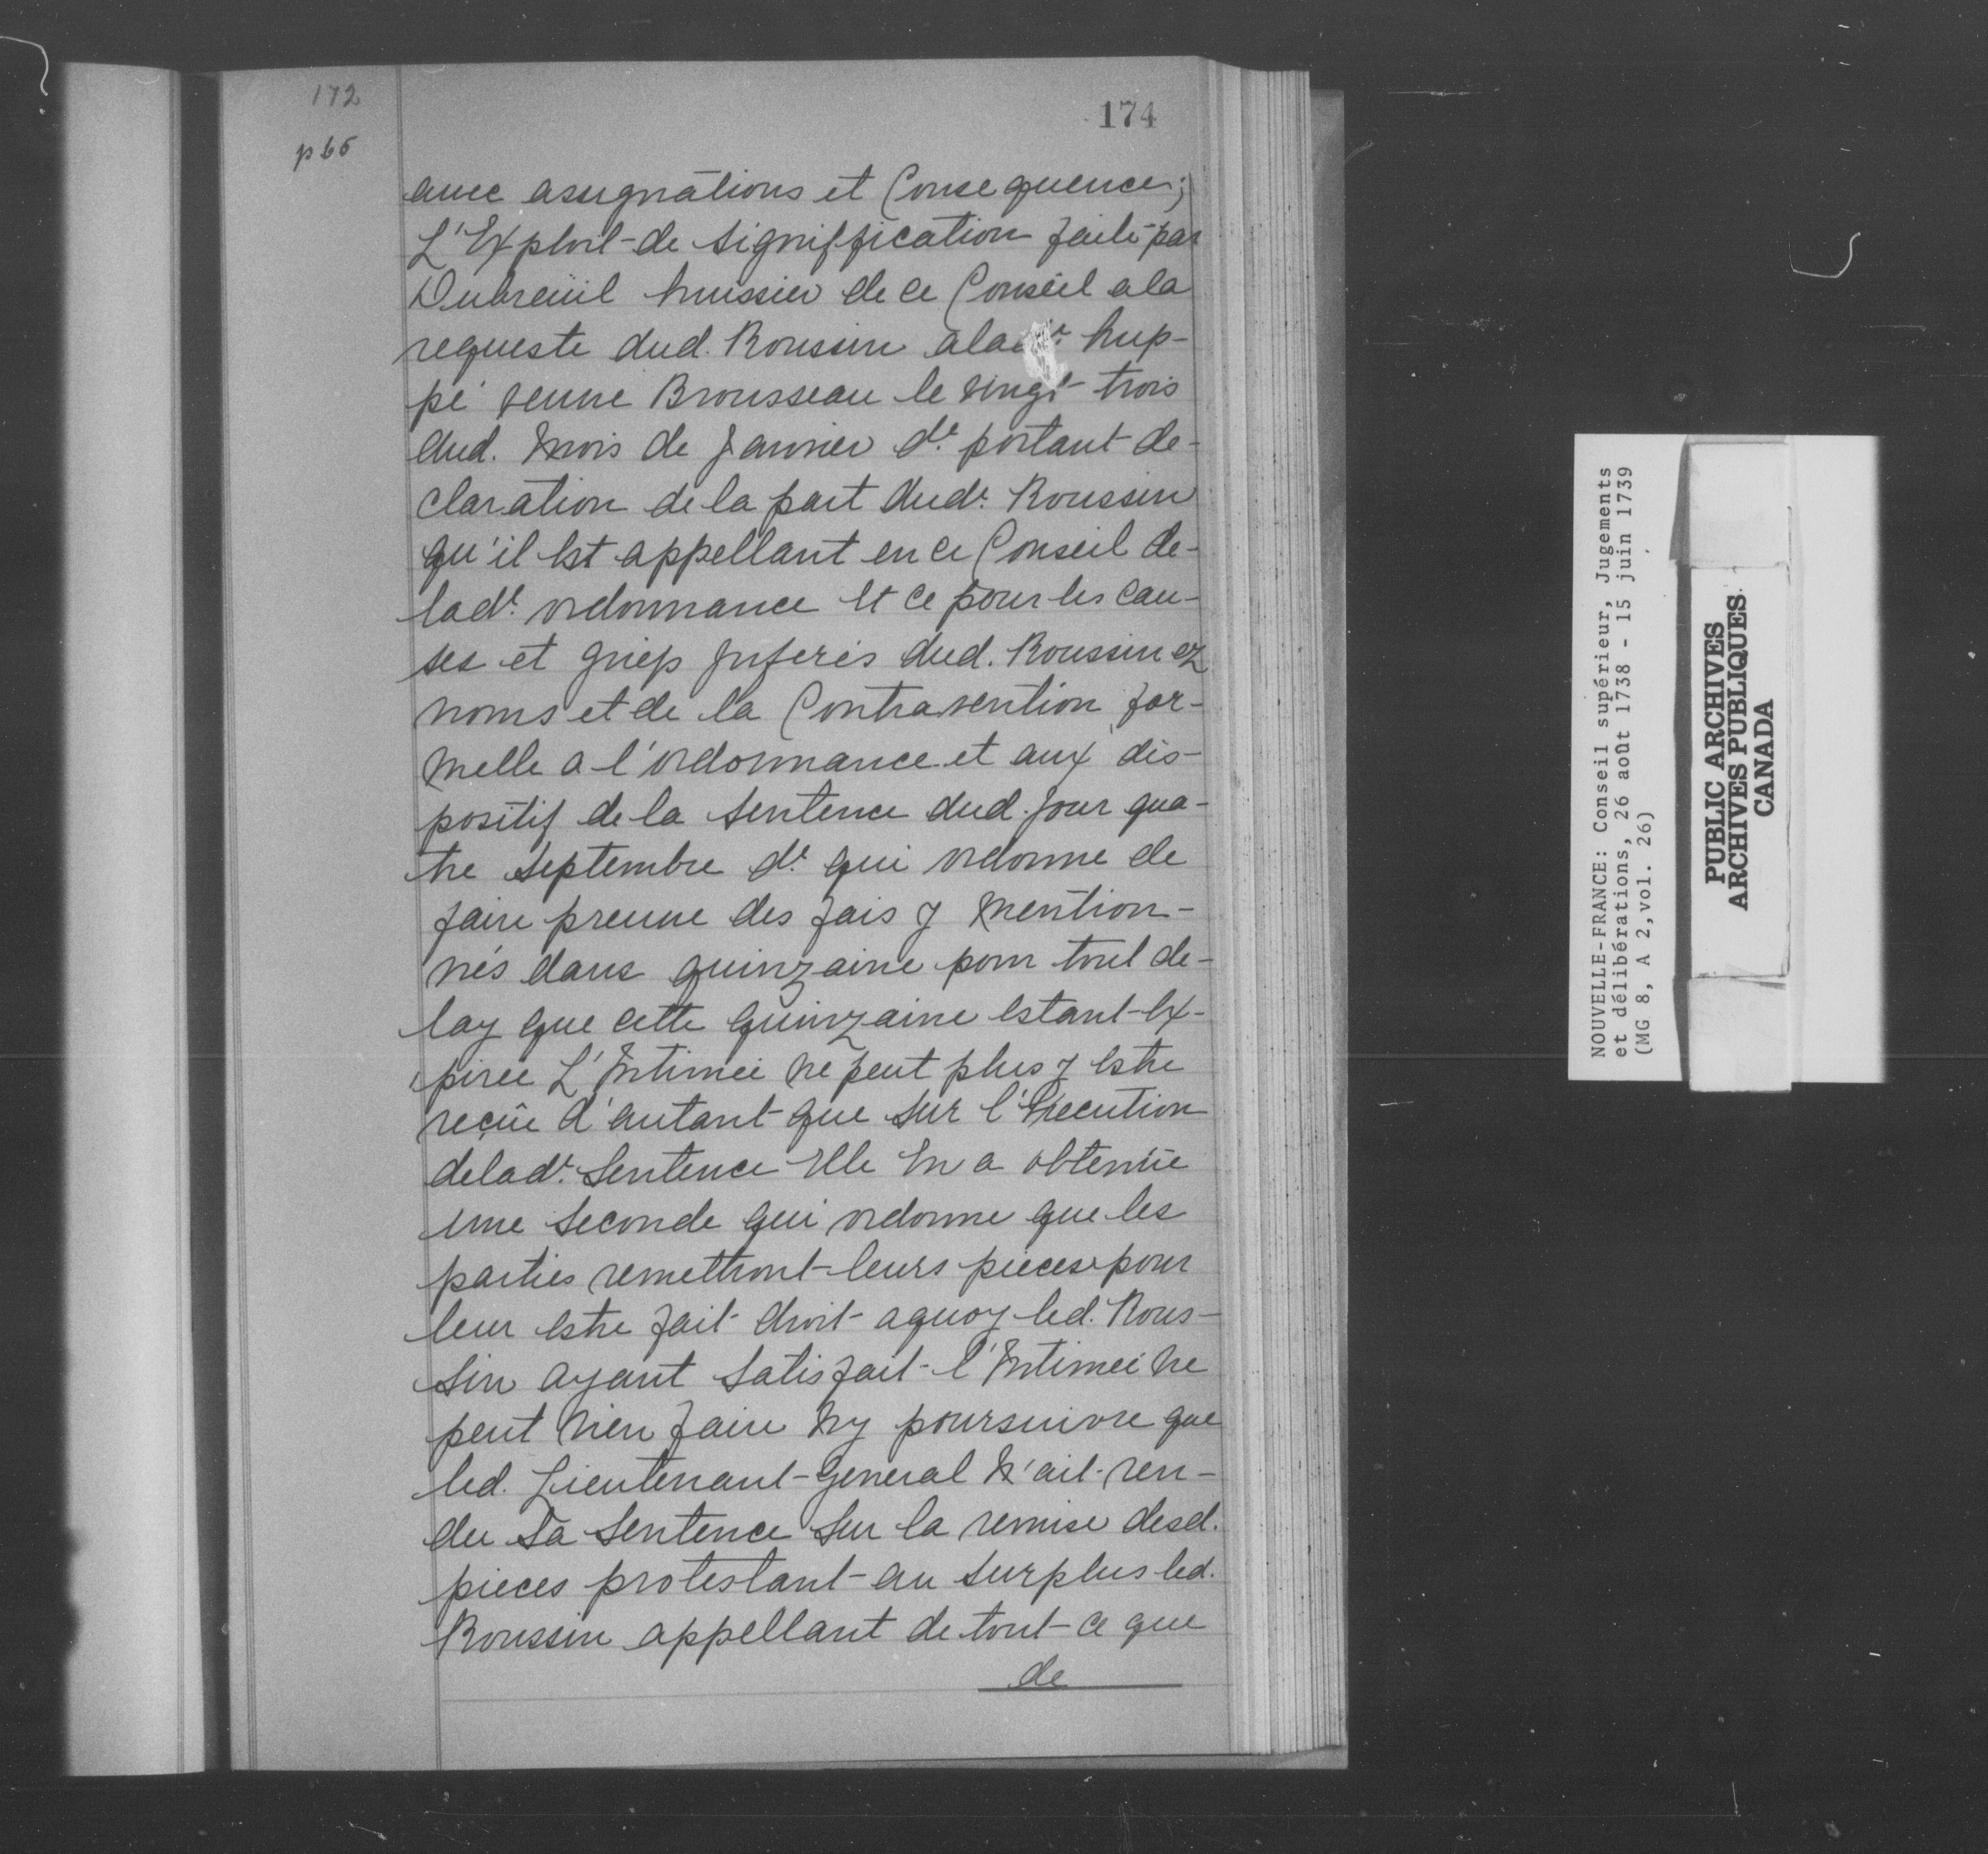 172
p 66
174
avec assignations et Consequences;
L'Exploit de signiffication faite par
Dubreüil huissier de ce Conseil a la
requeste dud. Roussin a lad.e hup-
pé veuve Brousseau le vingt trois
dud. Mois de Janvier d.r portant de-
claration de la part dud.t Roussin
qu'il Est appellant en ce Conseil de-
lad.e ordonnance Et ce pour les cau-
ses et griefs Inferés dud. Roussin ez
noms et de la Contravention for-
melle a l'ordonnance et aux dis-
positif de la sentence dud. Jour qua-
tre septembre d.r qui ordonne de
faire preuve des fais y Mention-
nés dans quinzaine pour tout de-
lay que cette quinzaine Estant Ex-
pirée L'Intimée ne peut plus y Estre
reçüe d'autant que sur l'Execution
delad.e Sentence Elle En a obtenüe
une seconde qui ordonne que les
parties remettront leurs pieces pour
leur Estre fait droit aquoy led. Rous-
sin ayant satisfait l'Intimée ne
peut rien faire Ny poursuivre que
led. Lieutenant General N'ait ren-
du sa sentence sur la remise desd.
pieces protestant au surplus led.
Roussin appellant de tout ce que
de
NOUVELLE-FRANCE: Conseil supérieur, Jugements
et délibérations, 26 août 1738 - 15 juin 1739
(MG 8, A 2,vol. 26)
PUBLIC ARCHIVES
ARCHIVES PUBLIQUES
CANADA